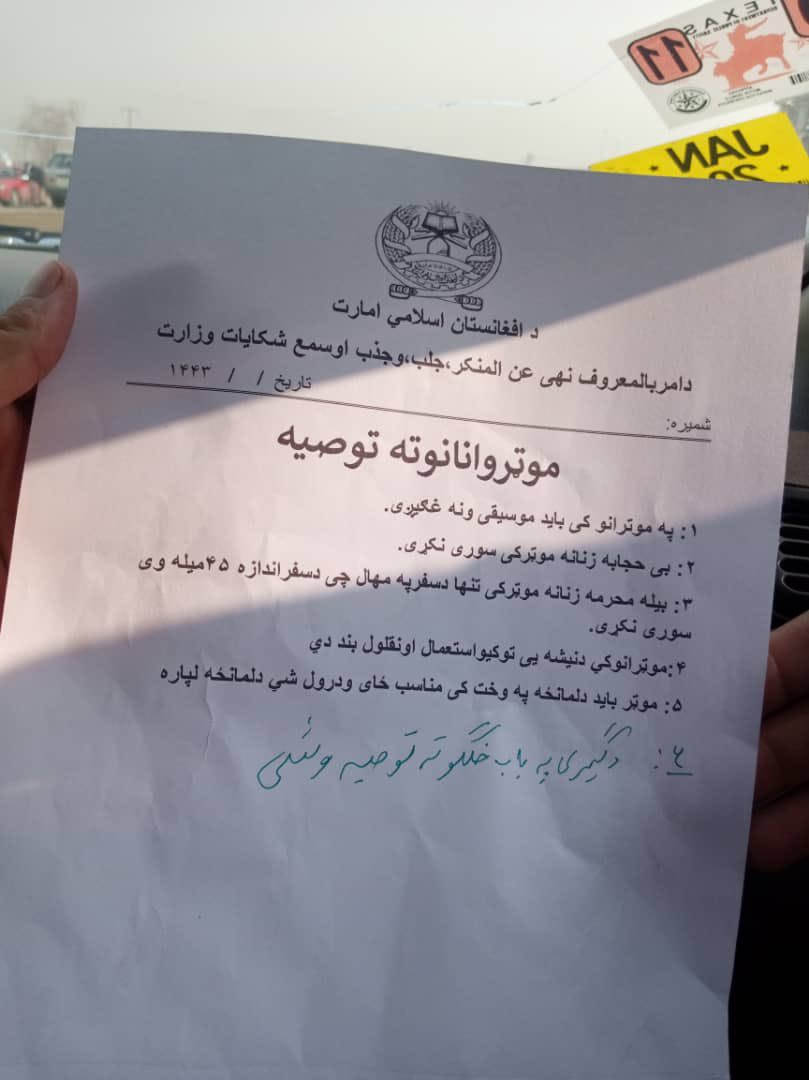 TEXAS
11
JAN
د افغانستان اسلامي امارت
دامربالمعروف نهی عن المنکر،جلب،وجذب اوسمع شکایات وزارت
تاریخ / / ۱۴۴۳
شمیره:
موټروانانوته توصیه
۱: په موټرانو کی باید موسیقی ونه غګیږی.
۲: بی حجابه زنانه موټرکی سوری نکړی.
۳: بیله محرمه زنانه موټرکی تنها دسفرپه مهال چی دسفراندازه ۴۵میله وی
سوری نکړی.
۴:موټرانوکي دنیشه یی توکیواستعمال اونقلول بند دي
۵: موټر باید دلمانځه په وخت کی مناسب ځای ودرول شي دلمانځه لپاره
۶: دګیري په باب خلګو ته توصیه وشي